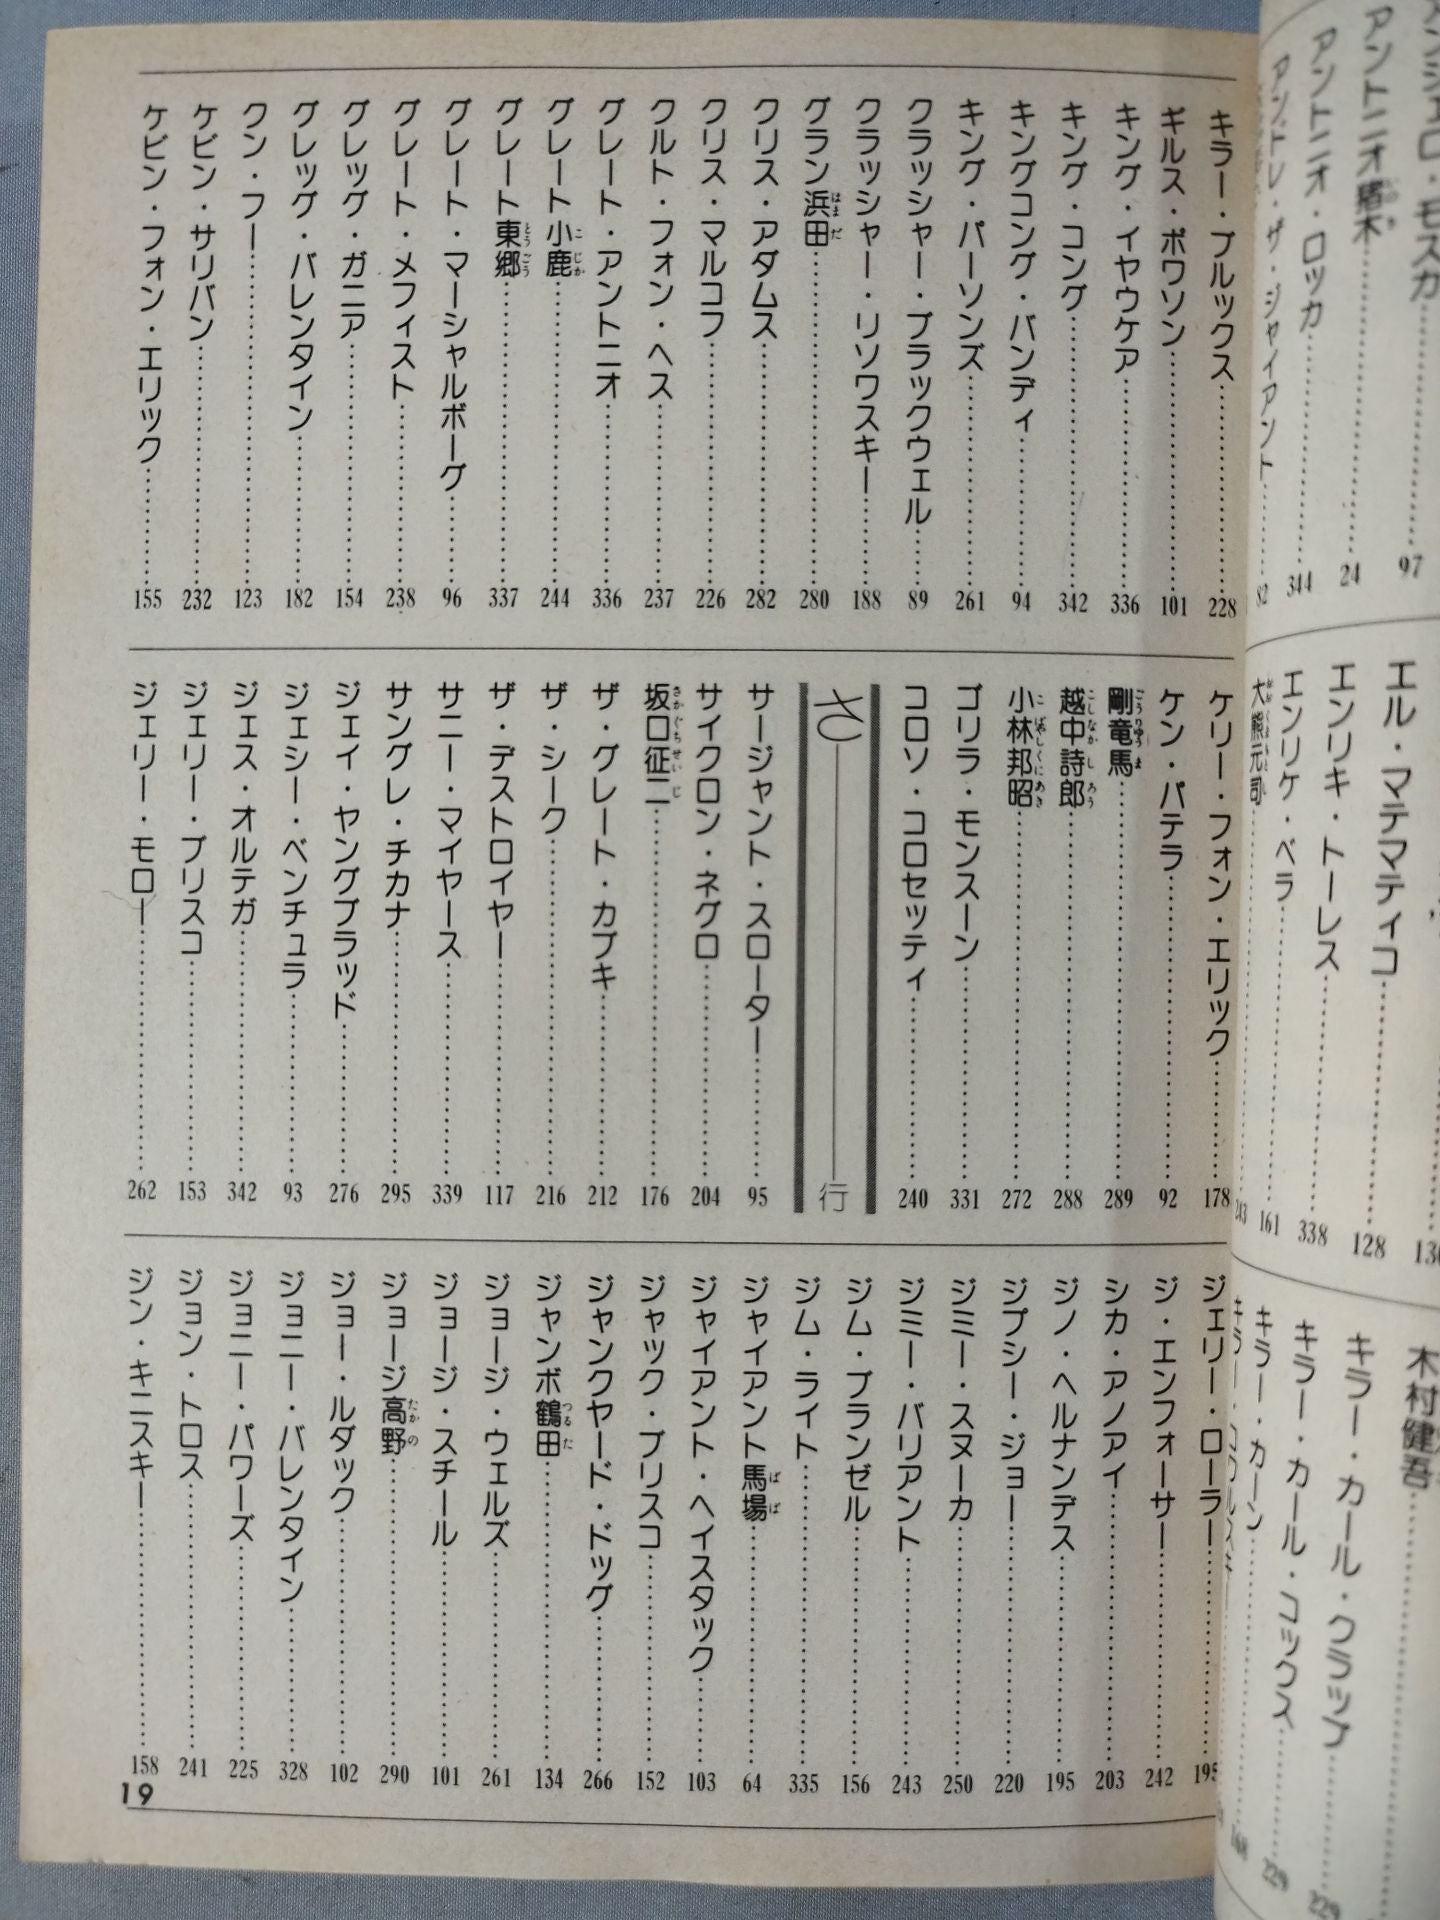 アンジェロ・モスカ 97
アントニオ猪木 24
アントニオ・ロッカ 344
アンドレ・ザ・ジャイアント 82
エル・マテマティコ 128
エンリキ・トーレス 338
エンリケ・ベラ 161
大熊元司 243
木村健吾
キラー・カール・クラップ 229
キラー・カール・コックス 229
キラー・カーン 168
キラー・ブルックス 228
ギルス・ポワソン 101
キング・イヤウケア 336
キング・コング 342
キングコング・バンディ 94
キング・パーソンズ 261
クラッシャー・ブラックウェル 89
クラッシャー・リソワスキー 188
グラン浜田 280
はまだ
クリス・アダムス 282
クリス・マルコフ 226
クルト・フォン・ヘス 237
グレート・アントニオ 336
グレート小鹿 244
こじか
グレート東郷 337
とうごう
グレート・マーシャルボーグ 96
グレート・メフィスト 238
グレッグ・ガニア 154
グレッグ・バレンタイン 182
クン・フー 123
ケビン・サリバン 232
ケビン・フォン・エリック 155
ケリー・フォン・エリック 178
ケン・パテラ 92
剛竜馬 289
ごうりゅうま
越中詩郎 288
こしなかしろう
小林邦昭 272
こばやしくにあき
ゴリラ・モンスーン 331
コロソ・コロセッティ 240
さ行
サージャント・スローター 95
サイクロン・ネグロ 204
坂口征二 176
さかぐちせいじ
ザ・グレート・カブキ 212
ザ・シーク 216
ザ・デストロイヤー 117
サニー・マイヤース 339
サングレ・チカナ 295
ジェイ・ヤングブラッド 276
ジェシー・ベンチュラ 93
ジェス・オルテガ 342
ジェリー・ブリスコ 153
ジェリー・モロー 262
ジェリー・ローラー 195
ジ・エンフォーサー 242
シカ・アノアイ 203
ジノ・ヘルナンデス 195
ジプシー・ジョー 220
ジミー・スヌーカ 250
ジミー・バリアント 243
ジム・ブランゼル 156
ジム・ライト 335
ジャイアント馬場 64
ばば
ジャイアント・ヘイスタック 103
ジャック・ブリスコ 152
ジャンクヤード・ドッグ 266
ジャンボ鶴田 134
つるた
ジョージ・ウェルズ 261
ジョージ・スチール 101
ジョージ高野 290
たかの
ジョー・ルダック 102
ジョニー・バレンタイン 328
ジョニー・パワーズ 225
ジョン・トロス 241
ジン・キニスキー 158
19